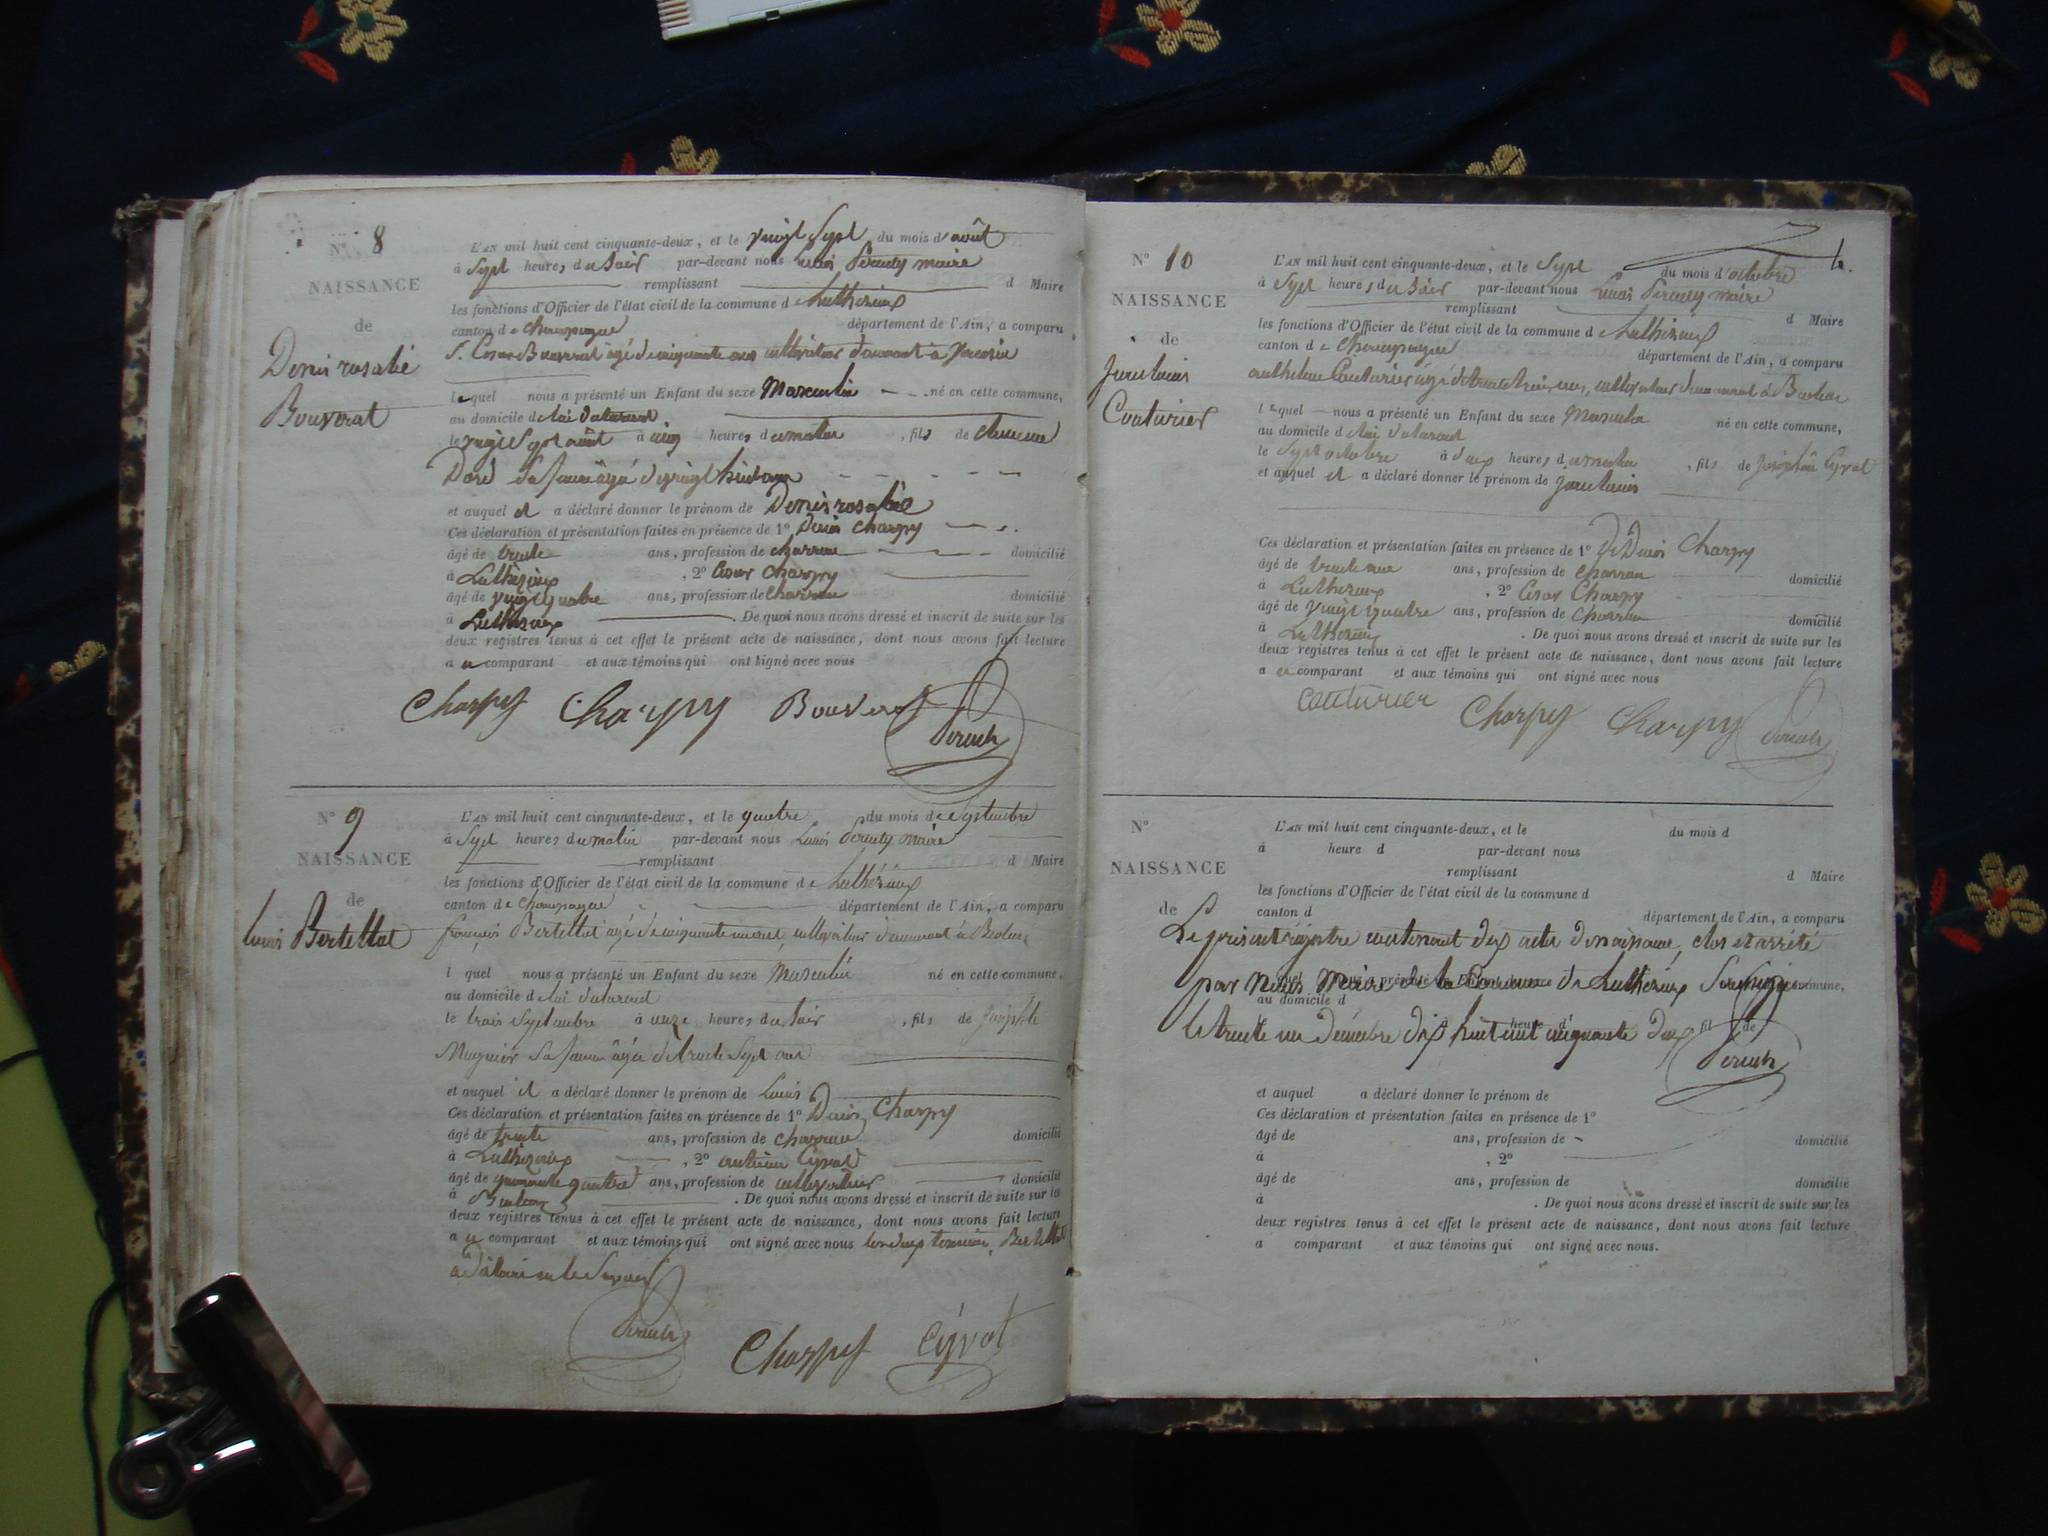 N° 8
NAISSANCE
de
Denis rosalie
Bouverat
L'AN mil huit cent cinquante-deux, et le vingt Sept du mois d'août
à Sept heures du Soir par-devant nous Louis Peruchy maire
remplissant d Maire
les fonctions d'Officier de l'état civil de la commune de Luthézieux
canton de Champagne département de l'Ain, a comparu
âgé de cinquante ans cultivateur demeurant à
lequel nous a présenté un Enfant du sexe Masculin né en cette commune,
au domicile de lui déclarant
le vingt Sept août à cinq heures du matin , fils de
sa femme âgée de vingt huit ans
et auquel il a déclaré donner le prénom de Denis rosalie
Ces déclaration et présentation faites en présence de 1° Denis Charpy
âgé de trente ans, profession de charron domicilié
à Luthézieux , 2° César Charpy
âgé de vingt quatre ans, profession de charron domicilié
à Luthézieux . De quoi nous avons dressé et inscrit de suite sur les
deux registres tenus à cet effet le présent acte de naissance, dont nous avons fait lecture
a u comparant et aux témoins qui ont signé avec nous
Charpy Charpy Bouverat
N° 9
NAISSANCE
de
Louis Bertettat
L'AN mil huit cent cinquante-deux, et le quatre du mois de Septembre
à Sept heures du matin par-devant nous Louis Peruchy maire
remplissant d Maire
les fonctions d'Officier de l'état civil de la commune de Luthézieux
canton de Champagne département de l'Ain, a comparu
françois Bertettat âgé de cultivateur demeurant à
l quel nous a présenté un Enfant du sexe Masculin né en cette commune,
au domicile de lui déclarant
le trois Septembre à onze heures du Soir , fils de
sa femme âgée de trente Sept ans
et auquel il a déclaré donner le prénom de Louis
Ces déclaration et présentation faites en présence de 1° Denis Charpy
âgé de trente ans, profession de charron domicilié
à Luthézieux , 2°
âgé de quarante quatre ans, profession de cultivateur domicilié
à . De quoi nous avons dressé et inscrit de suite sur les
deux registres tenus à cet effet le présent acte de naissance, dont nous avons fait lecture
a u comparant et aux témoins qui ont signé avec nous
Charpy
N° 10
NAISSANCE
de
Couturier
L'AN mil huit cent cinquante-deux, et le Sept du mois d'octobre
à Sept heures du Soir par-devant nous Louis Peruchy maire
remplissant d Maire
les fonctions d'Officier de l'état civil de la commune de Luthézieux
canton de Champagne département de l'Ain, a comparu
anthelme Couturier âgé de trente trois ans, cultivateur demeurant à
lequel nous a présenté un Enfant du sexe Masculin né en cette commune,
au domicile de lui déclarant
le Sept octobre à heures du matin , fils de
et auquel il a déclaré donner le prénom de
Ces déclaration et présentation faites en présence de 1° Denis Charpy
âgé de ans, profession de charron domicilié
à Luthézieux , 2° César Charpy
âgé de vingt quatre ans, profession de charron domicilié
à Luthézieux . De quoi nous avons dressé et inscrit de suite sur les
deux registres tenus à cet effet le présent acte de naissance, dont nous avons fait lecture
a u comparant et aux témoins qui ont signé avec nous
Couturier Charpy Charpy
N°
NAISSANCE
de
L'AN mil huit cent cinquante-deux, et le du mois d
à heure d par-devant nous
remplissant d Maire
les fonctions d'Officier de l'état civil de la commune d
canton d département de l'Ain, a comparu
Le présent registre contenant dix actes de naissance, clos et arrêté
par Nous Maire de la Commune de Luthézieux Soussigné
au domicile d
le trente un Décembre dix huit cent cinquante deux
et auquel a déclaré donner le prénom de
Ces déclaration et présentation faites en présence de 1°
âgé de ans, profession de domicilié
à , 2°
âgé de ans, profession de domicilié
à . De quoi nous avons dressé et inscrit de suite sur les
deux registres tenus à cet effet le présent acte de naissance, dont nous avons fait lecture
a comparant et aux témoins qui ont signé avec nous.